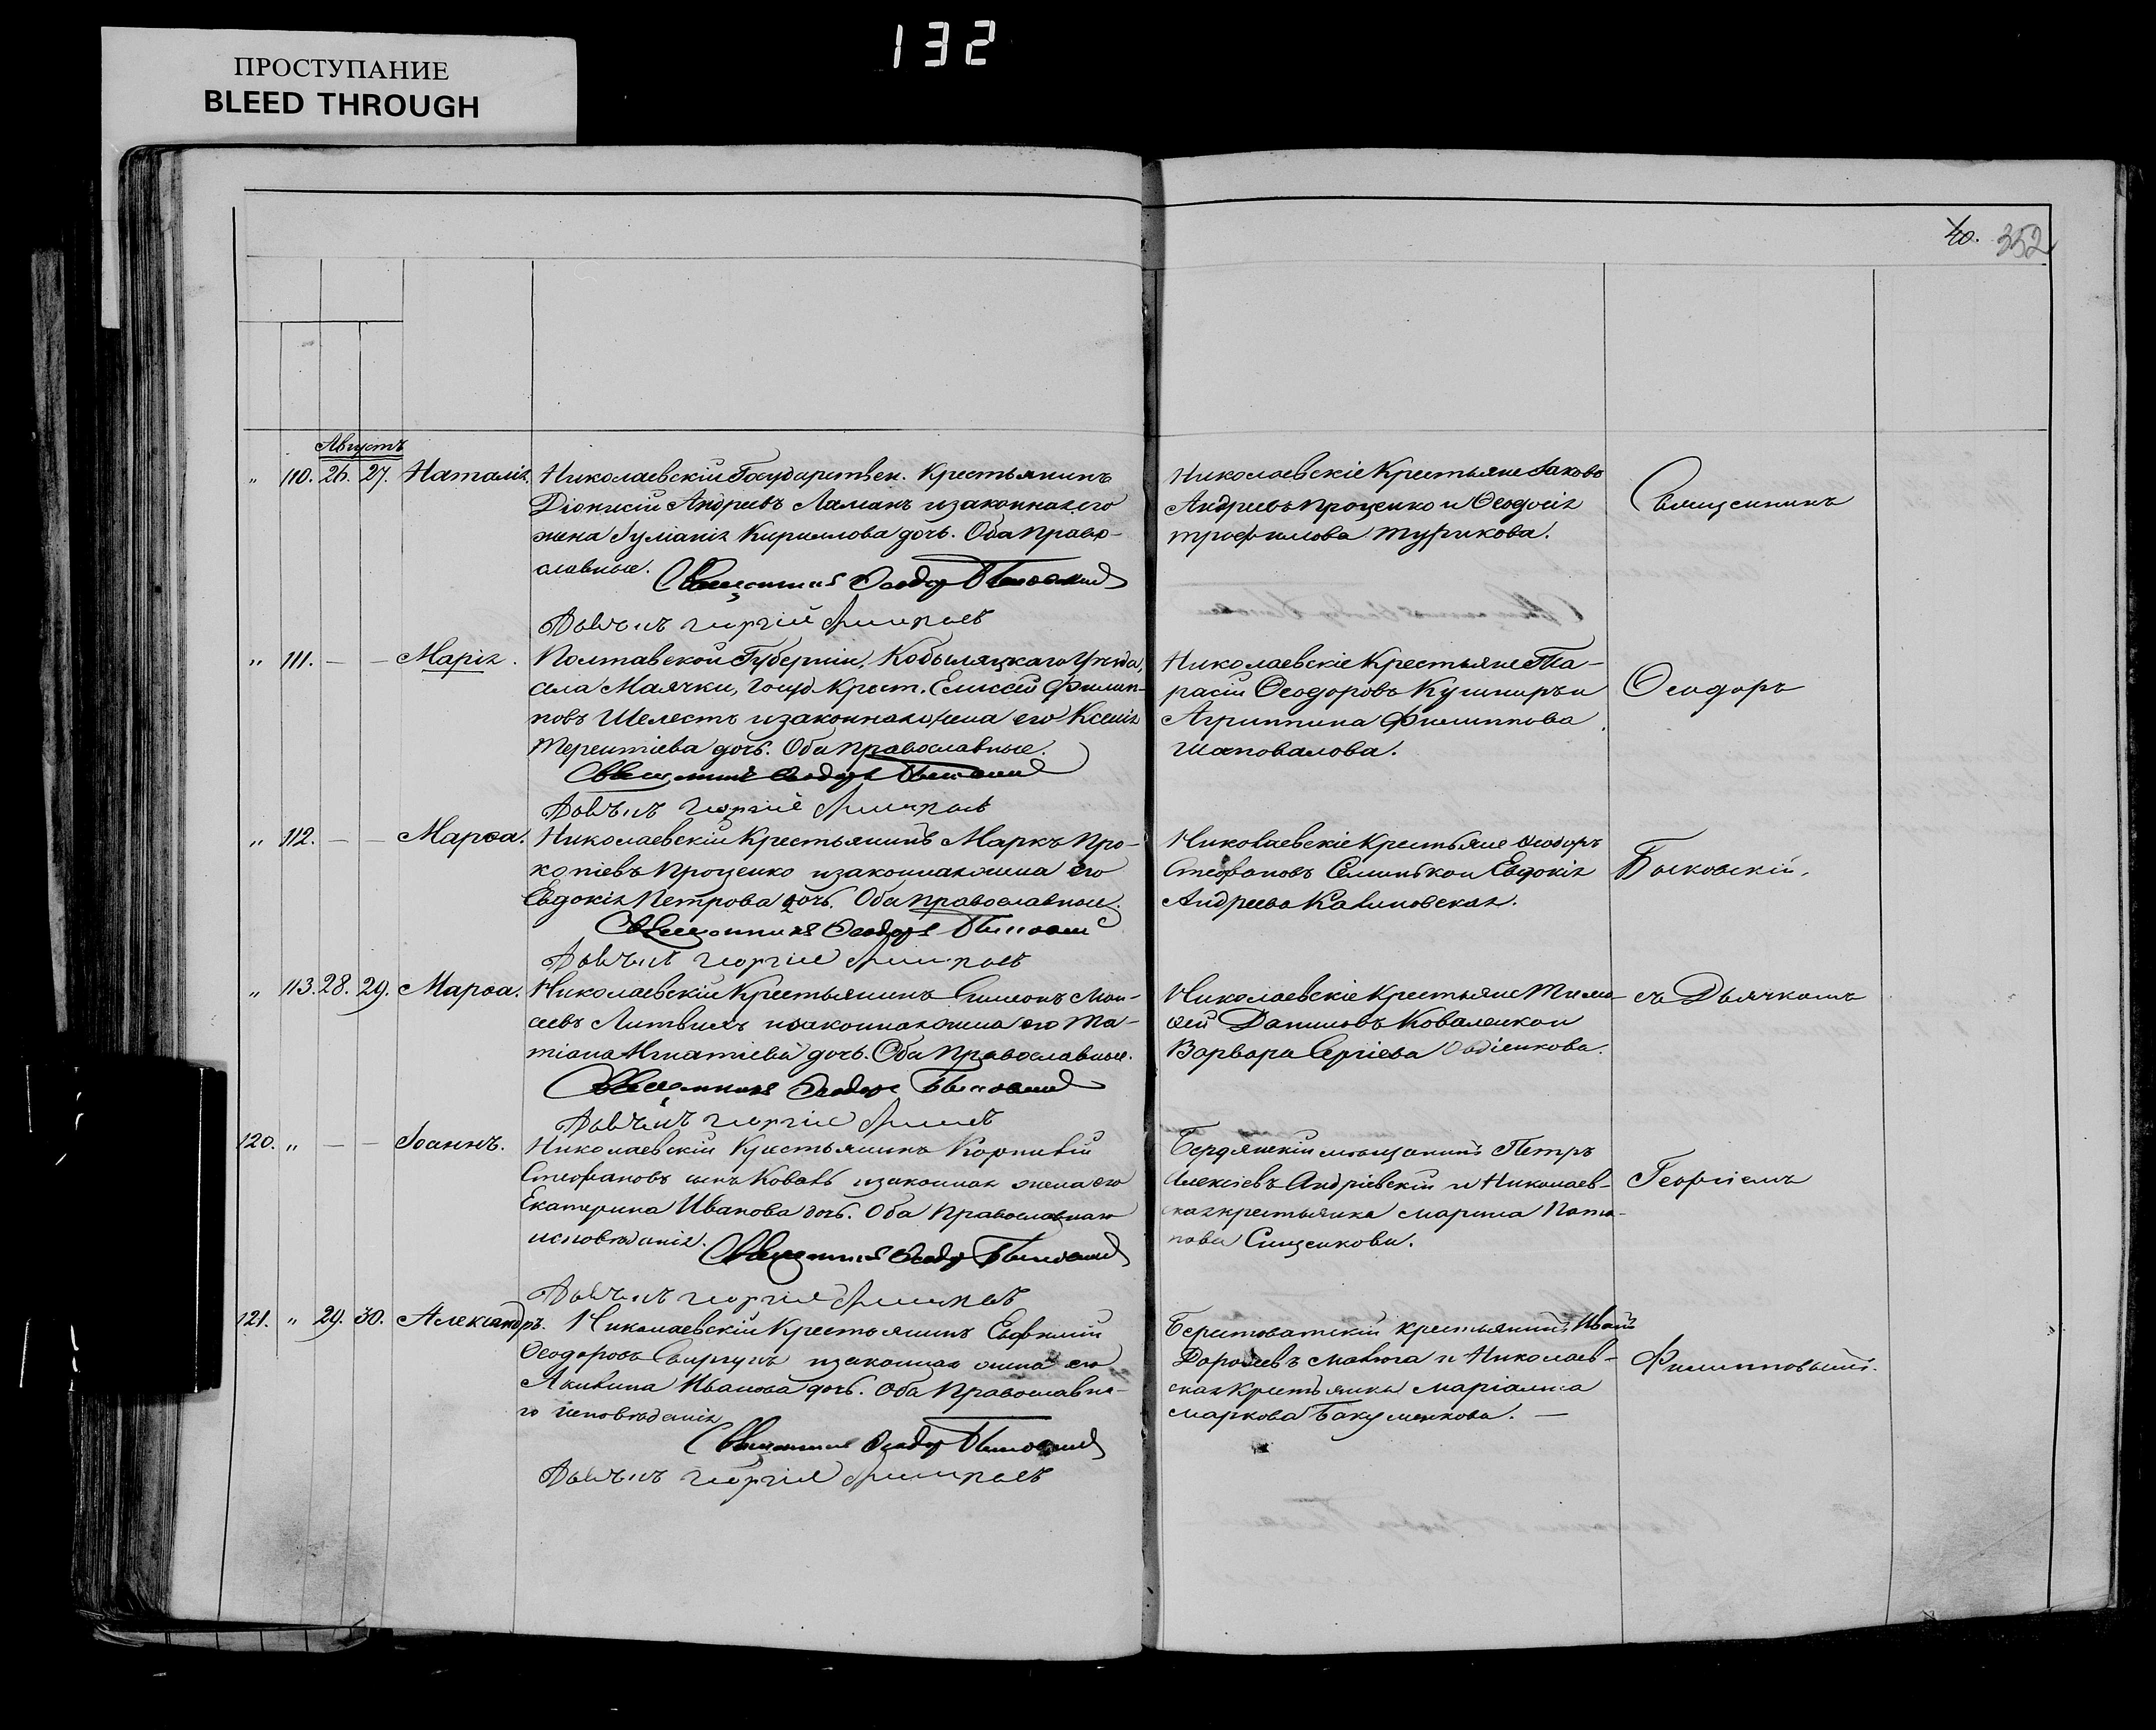 132
ПРОСТУПАНИЕ
BLEED THROUGH
40. 352
Августъ
" 110. 26. 27. Наталія. Николаевскій Государствен. Крестьянинъ
Діонисій Андреевъ Ламанъ изаконная его
жена Іуліанія Кириллова дочь. Оба Право-
славные.
Священникъ Ѳеодоръ Быковскій
Дьячекъ Георгій
Николаевскіе Крестьяне Іаковъ
Андреевъ Проценко и Ѳеодосія
Трофилова Турикова.
Священникъ
" 111. — — Марія. Полтавской Губерніи, Кобыляцкаго Уѣзда,
села Маячки, Госуд. Крест. Елисей Филип-
повъ Шелестъ изаконная жена его Ксенія
Терентіева дочь. Оба Православные.
Священникъ Ѳеодоръ Быковскій
Дьячекъ Георгій
Николаевскіе Крестьяне Та-
расій Ѳеодоровъ Кушниръ и
Агриппина Филиппова
Шаповалова.
Ѳеодоръ
" 112. — — Марѳа. Николаевскій Крестьянинъ Маркъ Про-
копіевъ Проценко изаконная жена его
Евдокія Петрова дочь. Оба Православные.
Священникъ Ѳеодоръ Быковскій
Дьячекъ Георгій
Николаевскіе Крестьяне Ѳеодоръ
Стефановъ Семинько и Евдокія
Андреева Калиновская.
Быковскій,
" 113. 28. 29. Марѳа. Николаевскій Крестьянинъ Симеонъ Мои-
сеевъ Литвинъ изаконная жена его Та-
тіана Игнатіева дочь. Оба Православные.
Священникъ Ѳеодоръ Быковскій
Дьячекъ Георгій
Николаевскіе Крестьяне Тимо-
ѳей Даниловъ Коваленко и
Варвара Сергіева Овдіенкова.
съ Дьячкомъ
120. " — — Іоаннъ. Николаевскій Крестьянинъ Корнилій
Стефановъ сынъ Коваль изаконная жена его
Екатерина Иванова дочь. Оба Православнаго
исповѣданія.
Священникъ Ѳеодоръ Быковскій
Дьячекъ Георгій
Бердянскій мѣщанинъ Петръ
Алексіевъ Андріевскій и Николаев-
ская крестьянка Марина Пота-
пова Сищенкова.
Георгіемъ
121. " 29. 30. Александръ. Николаевскій Крестьянинъ Евфимій
Ѳеодоровъ изаконная жена его
Акилина Иванова дочь. Оба Православна-
го исповѣданія
Священникъ Ѳеодоръ Быковскій
Дьячекъ Георгій
Берестоватскій крестьянинъ Иванъ
Дороѳеевъ Малюга и Николаев-
ская Крестьянка Маріамна
Маркова Бакуменкова. —
Филипповымъ.